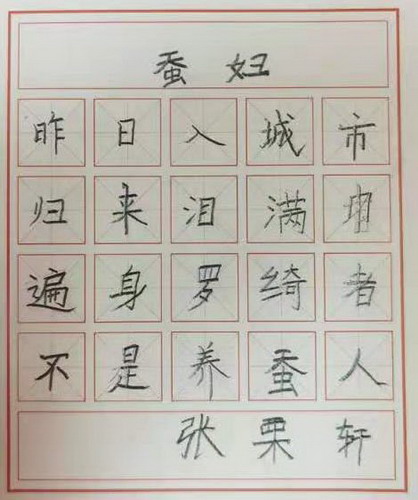 蚕妇
昨日入城市
归来泪满
遍身罗绮者
不是养蚕人
张栗轩